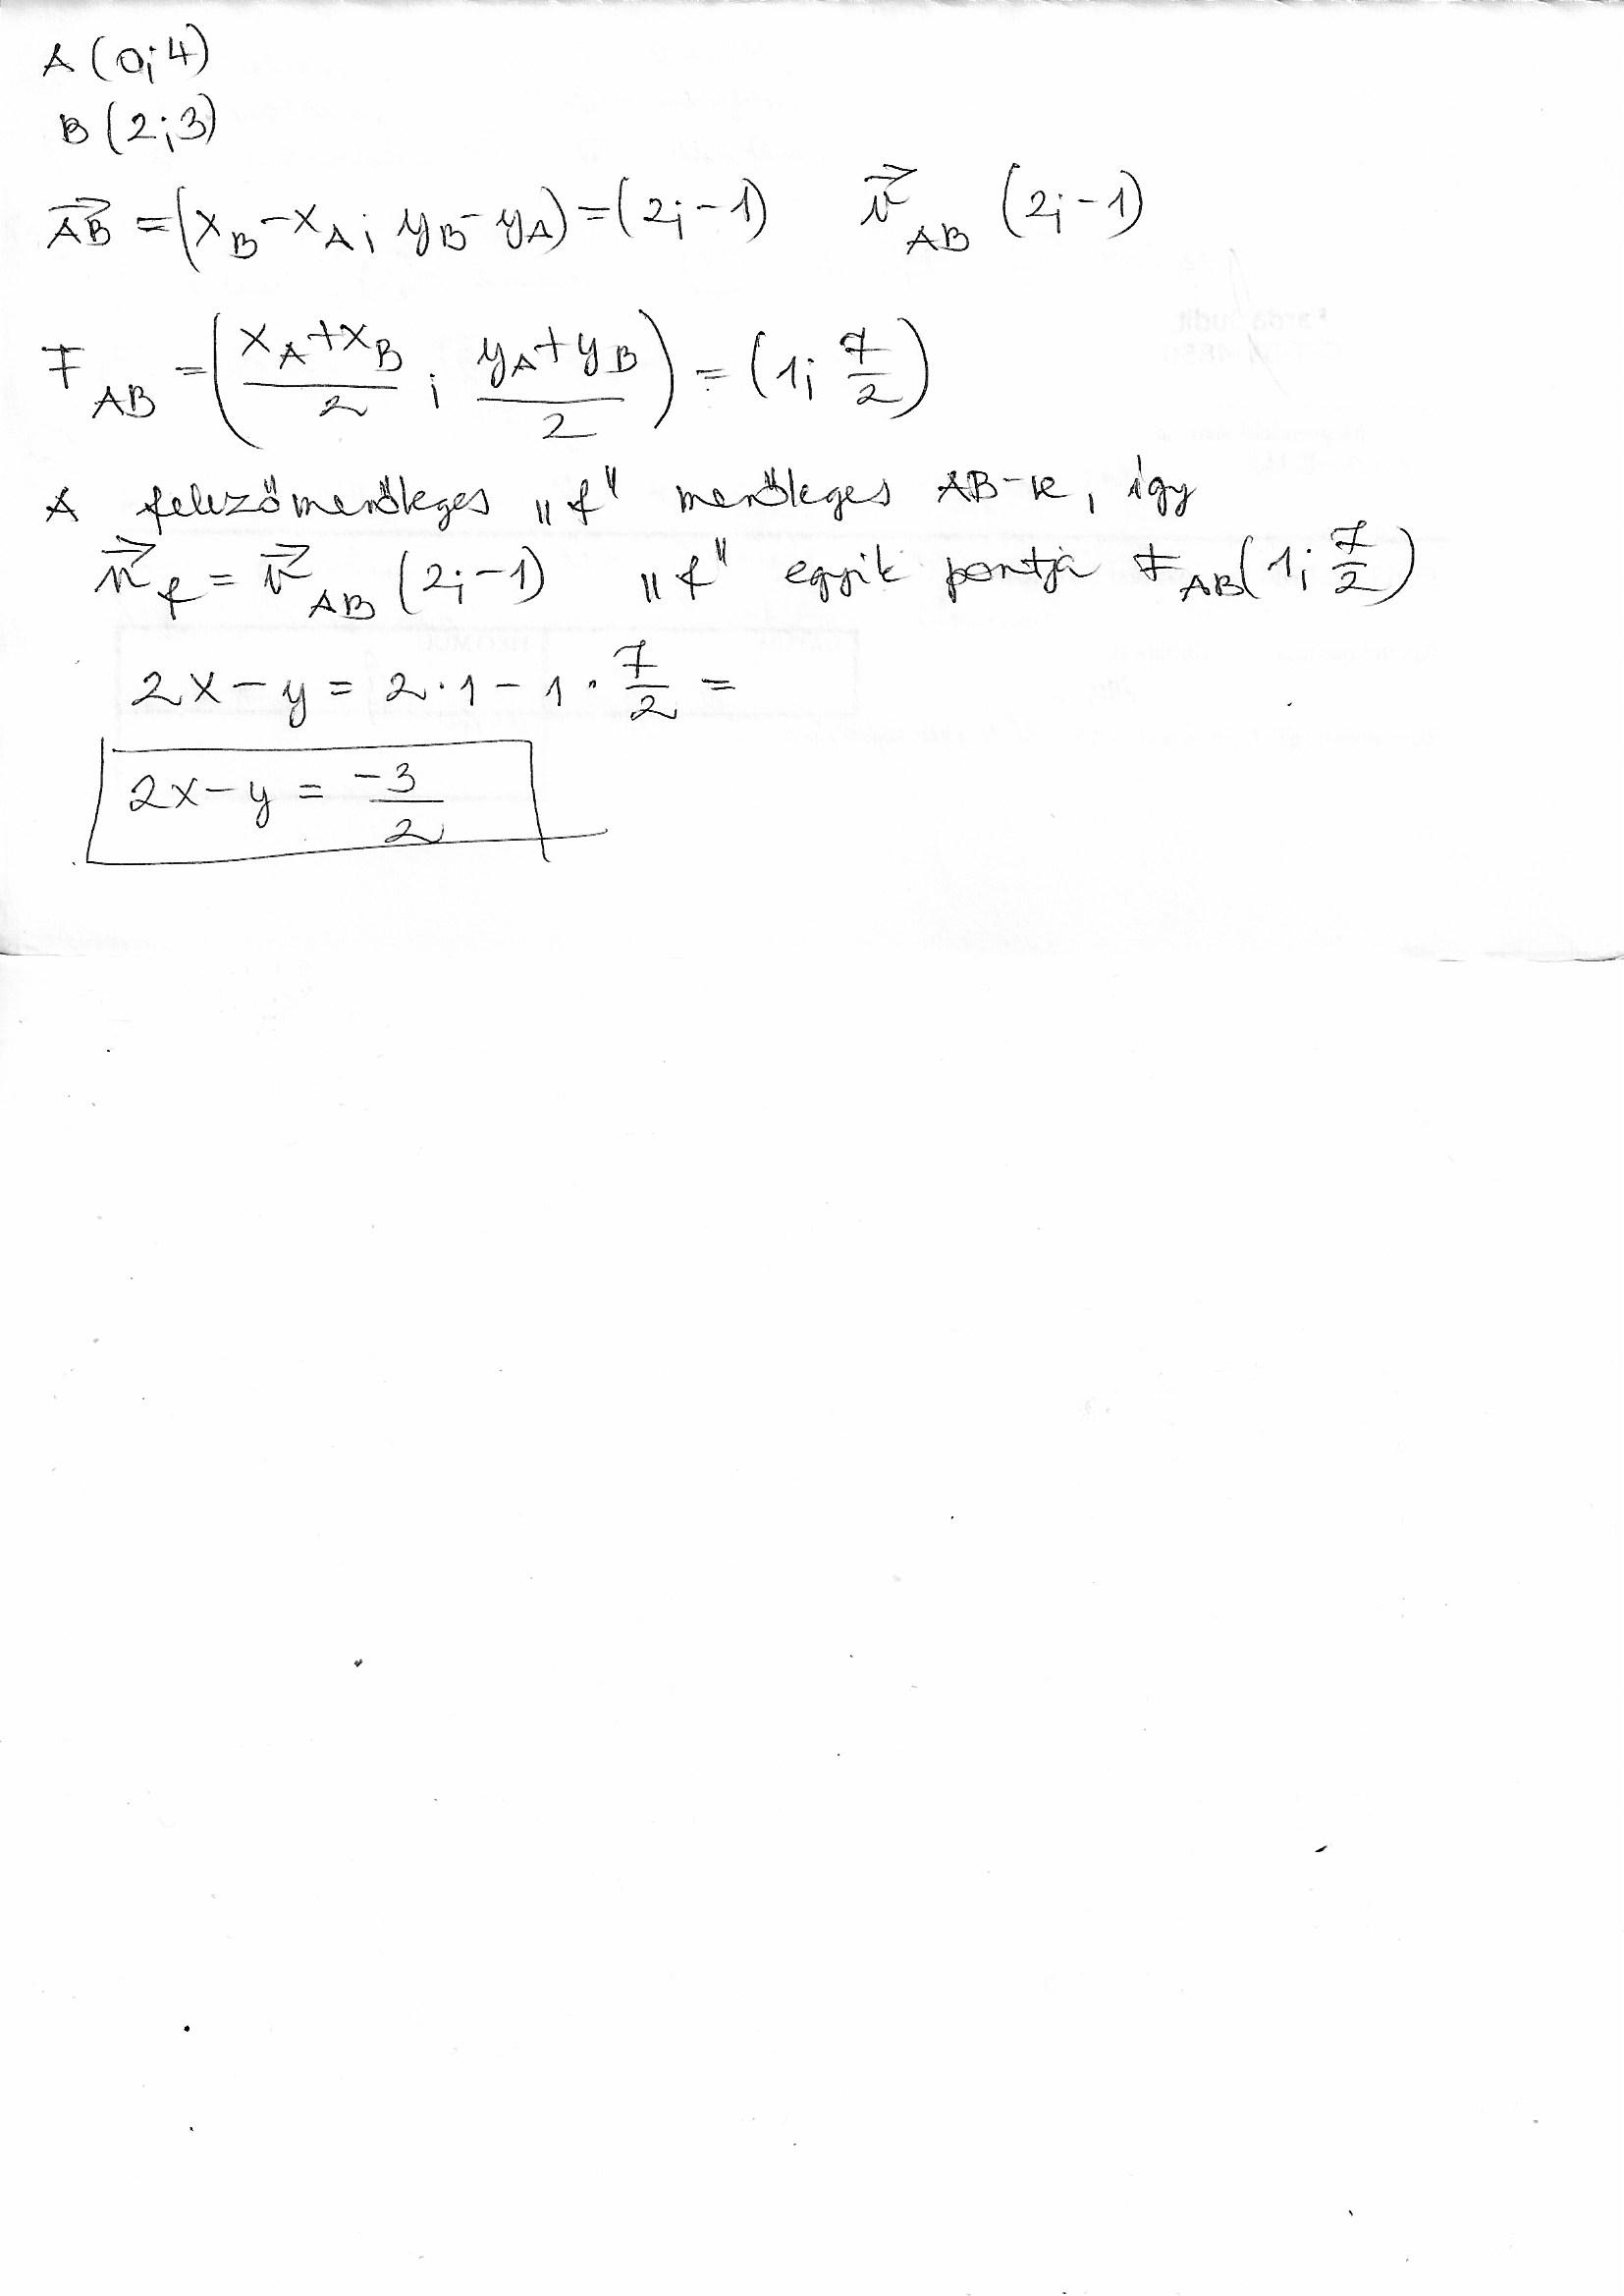 A (0;4)
B (2;3)
\overrightarrow{AB} = (x_B - x_A; y_B - y_A) = (2; -1) \vec{v}_{AB} (2; -1)
F_{AB} = (\frac{x_A + x_B}{2}; \frac{y_A + y_B}{2}) = (1; \frac{7}{2})
A felezőmerőleges „f" merőleges AB-re, így
\vec{n}_f = \vec{v}_{AB} (2; -1) „f" egyik pontja F_{AB} (1; \frac{7}{2})
2x - y = 2 · 1 - 1 · \frac{7}{2} =
2x - y = \frac{-3}{2}